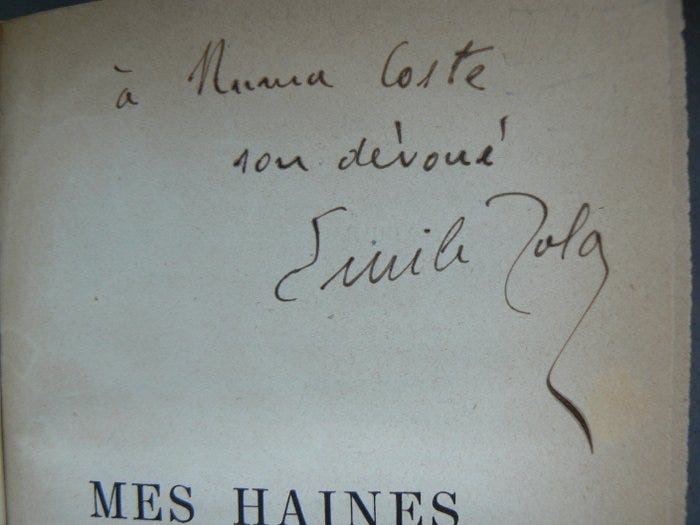 à Numa Coste
son dévoué
Emile Zola
MES HAINES